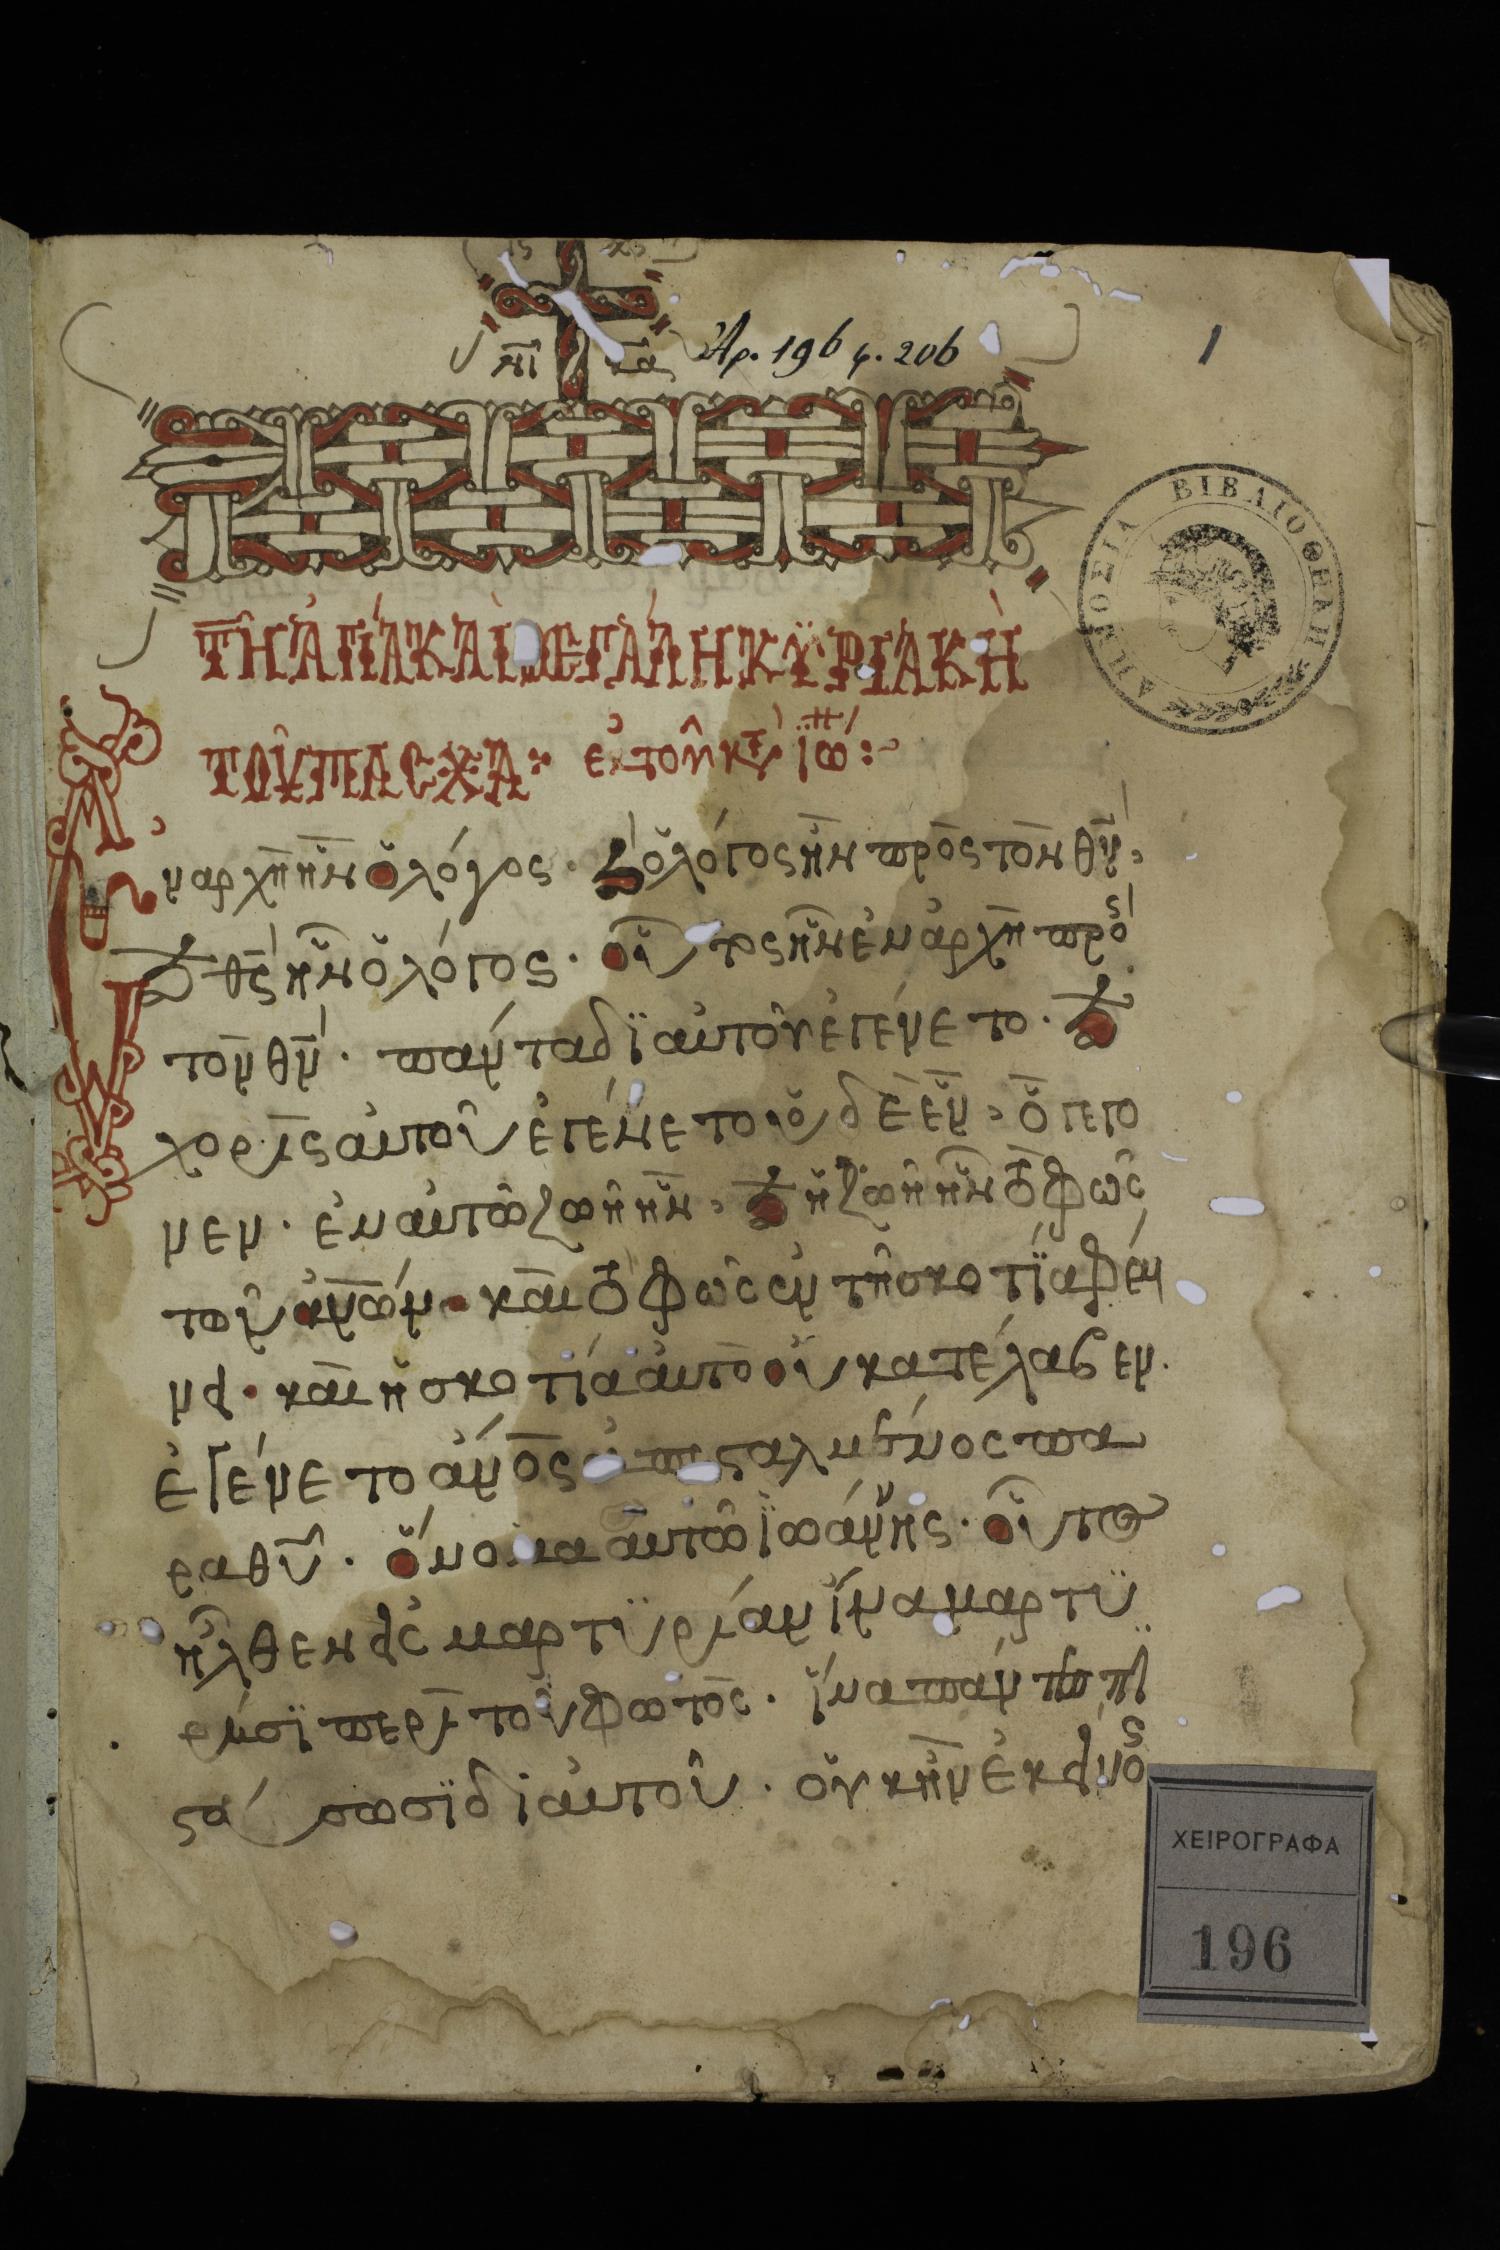 ἰς χς
νι κα
Ἀρ. 196 φ. 206
1
ΔΗΜΟΣΙΑ ΒΙΒΛΙΟΘΗΚΗ
ΤῊ ἈΓΊΑ ΚΑῚ ΜΕΓΆΛΗ ΚΫΡΙΑΚῊ
ΤΟΥ͂ ΠΑΣΧΑ: ἐκ τοῦ κτ ἰω:~
Ἐν αρχῆ ἦν ὁ λόγος · ϗ ὁ λόγος ἦν πρὸς τὸν θν̄,
ϗ θς̄ ἦν ὁ λόγος · οὗτος ἦν ἐν ἀρχῆ πρὸς
τὸν θν̄ · πάντα δϊ αὐτοῦ ἐγένετο · ϗ
χορὶς αὐτοῦ ἐγένετο οὐδὲ ἓν, ὃ γεγο
νεν · ἐν αὐτῶ ζωῆ ἦν, ϗ ἡ ζωῆ ἦν τὸ φῶς
τῶν ἀν̄ων · καὶ τὸ φῶς ἐν τῆ σκοτίᾳ φαί
νει · καὶ ἡ σκοτία αὐτὸ οὐ κατέλαβεν.
ἐγένετο ἀν̄ος ἀπεσταλμένος πα
ρα θῦ · ὄνομα αὐτῶ ἰωάννης · οὗτος
ἦλθεν εἰς μαρτϋρίαν ἵνα μαρτϋ
ρήσϊ περὶ τοῦ φωτὸς · ἵνα πάντες πϊ
στεύσωσϊ δι αὐτοῦ · οὐκ ἦν ἐκεῖνος
ΧΕΙΡΟΓΡΑΦΑ
196